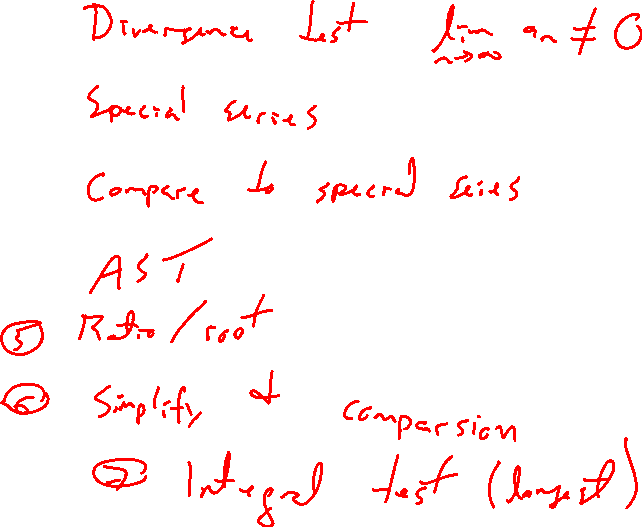 Divergence test lim n→∞ an ≠ 0
Special series
Compare to special seies
AST
⑤ Ratio/root
⑥ Simplify & comparsion
⑦ Integral test (longest)